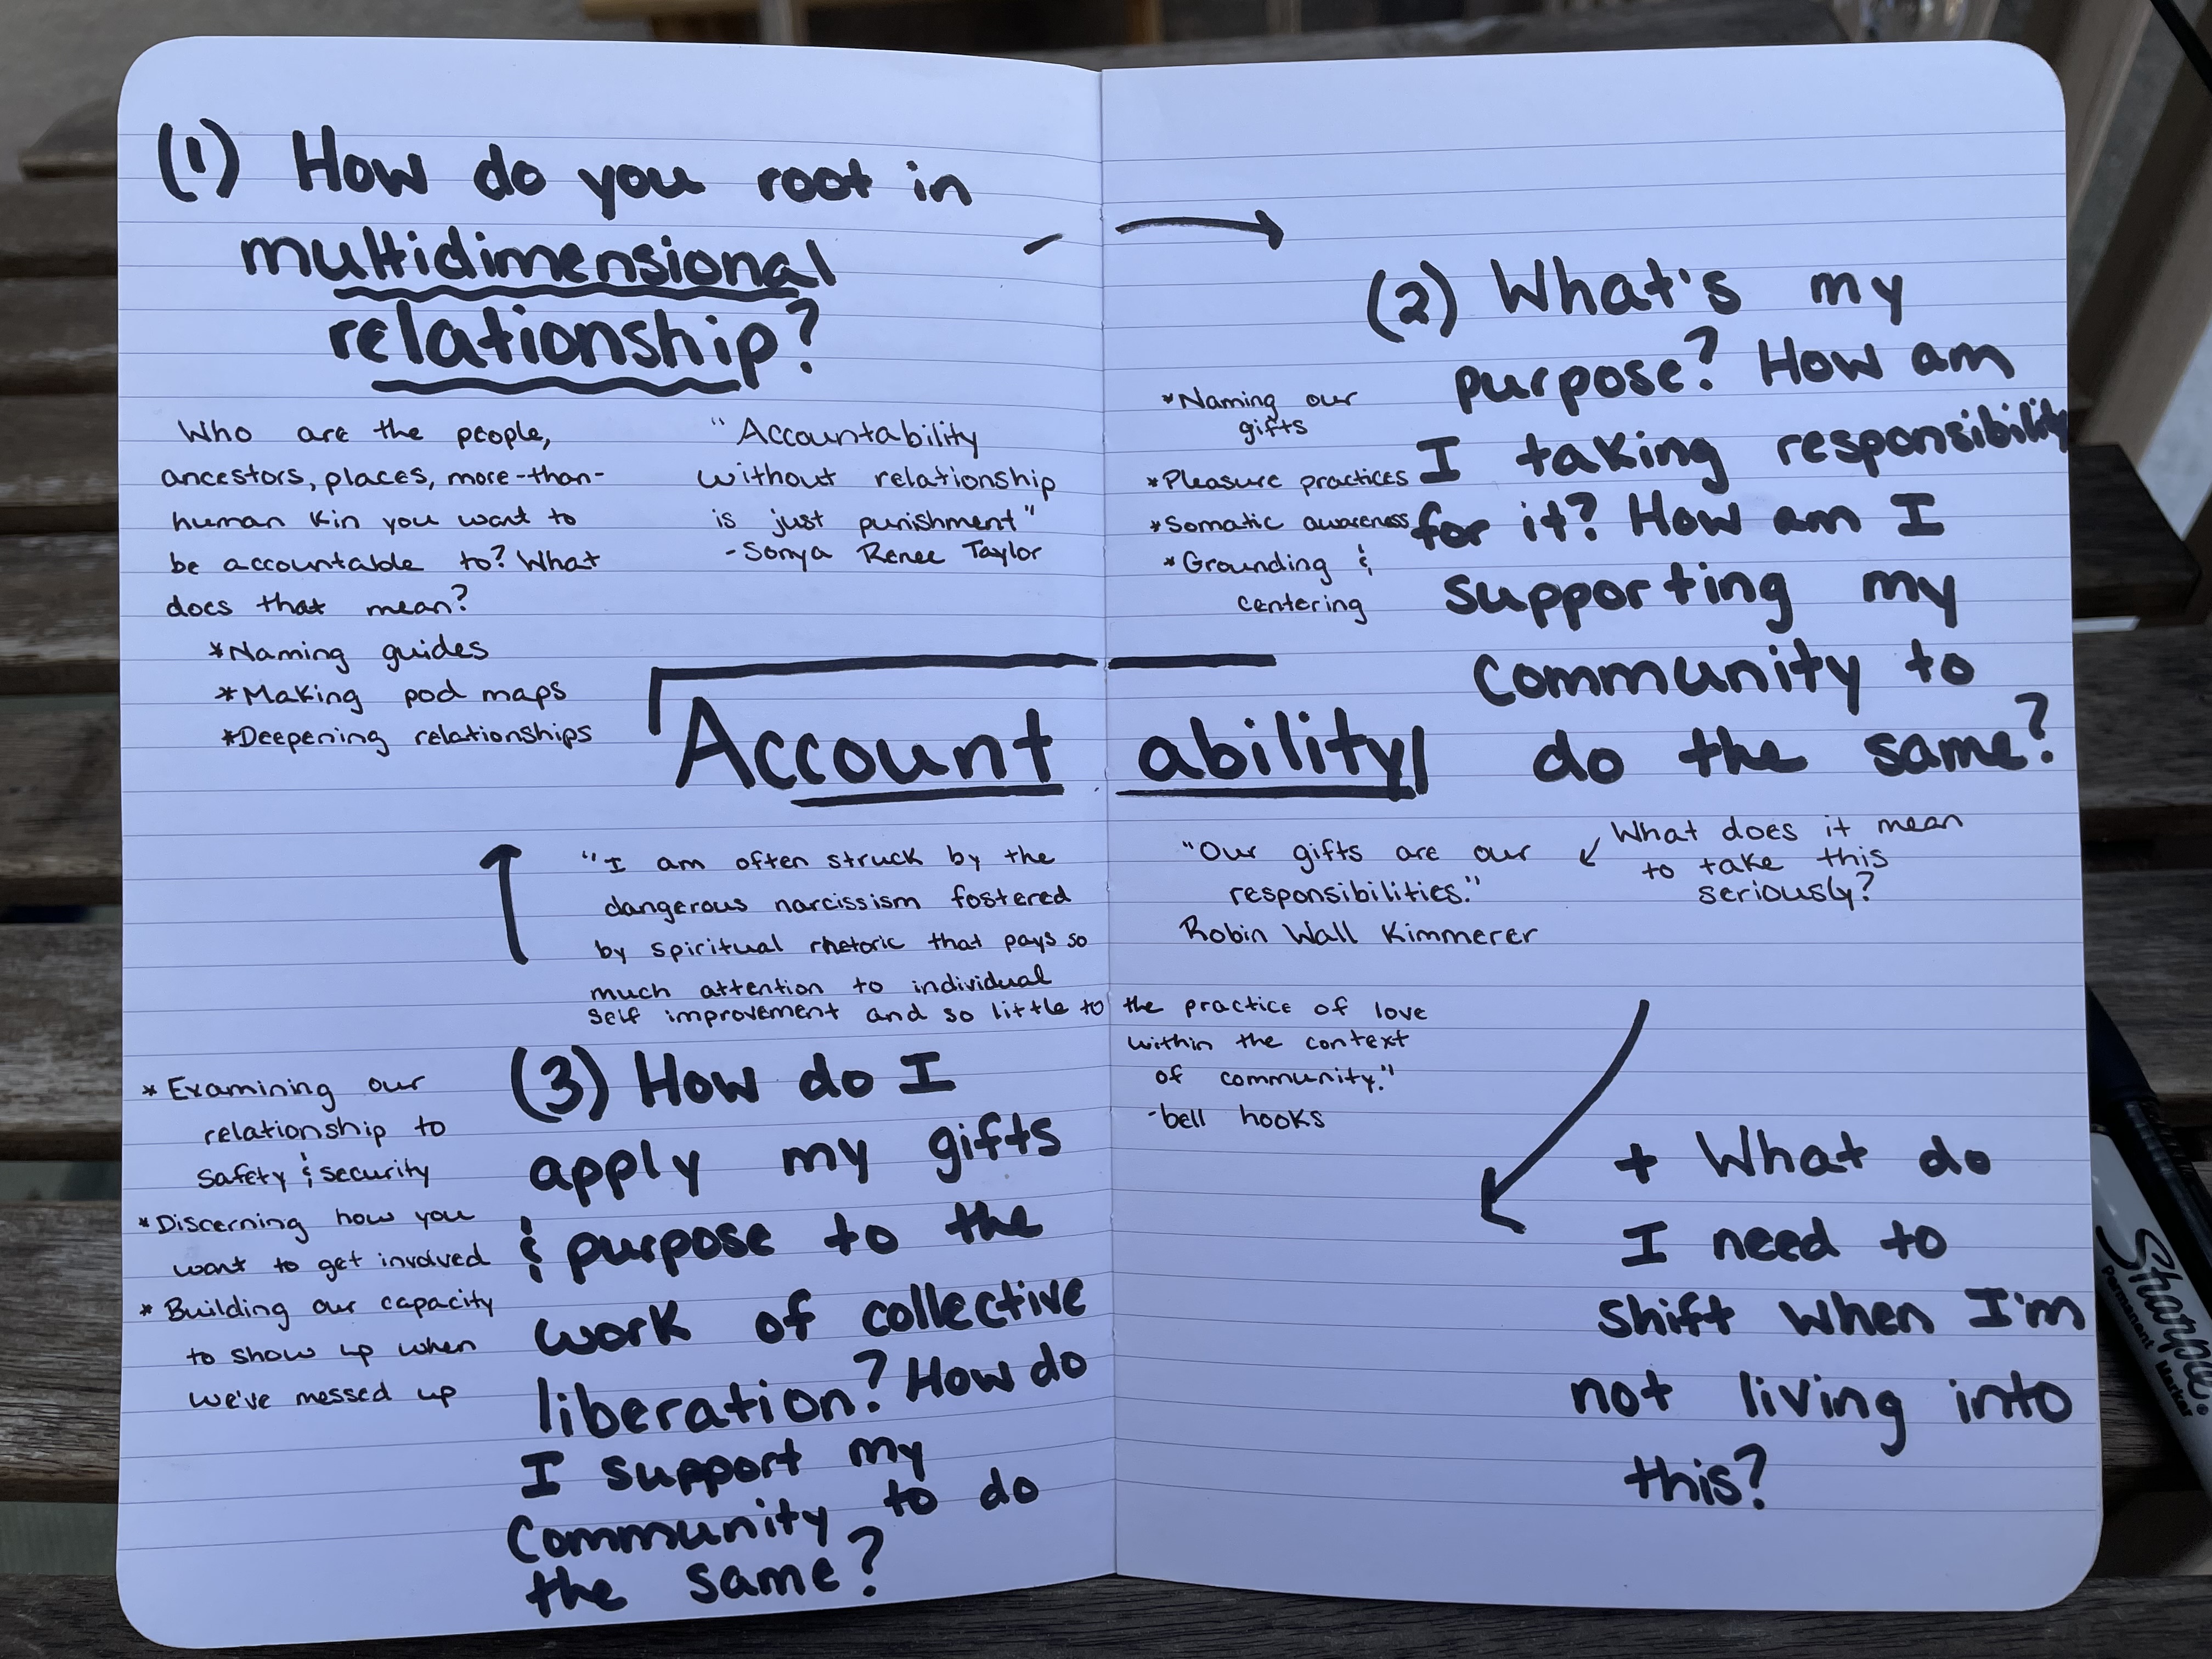 (1) How do you root in
multidimensional
relationship?
Who are the people,
ancestors, places, more-than-
human kin you want to
be accountable to? What
does that mean?
*Naming guides
*Making pod maps
*Deepening relationships
"Accountability
without relationship
is just punishment"
-Sonya Renee Taylor
(2) What's my
purpose? How am
I taking responsibility
for it? How am I
supporting my
community to
do the same?
*Naming our
gifts
*Pleasure practices
*Somatic awareness
*Grounding &
centering
Account ability
"Our gifts are our
responsibilities."
Robin Wall Kimmerer
What does it mean
to take this
seriously?
"I am often struck by the
dangerous narcissism fostered
by spiritual rhetoric that pays so
much attention to individual
self improvement and so little to the practice of love
within the context
of community."
-bell hooks
(3) How do I
apply my gifts
& purpose to the
work of collective
liberation? How do
I support my
community to do
the same?
* Examining our
relationship to
safety & security
*Discerning how you
want to get involved
* Building our capacity
to show up when
we've messed up
+ What do
I need to
shift when I'm
not living into
this?
Sharpie
Permanent Marker